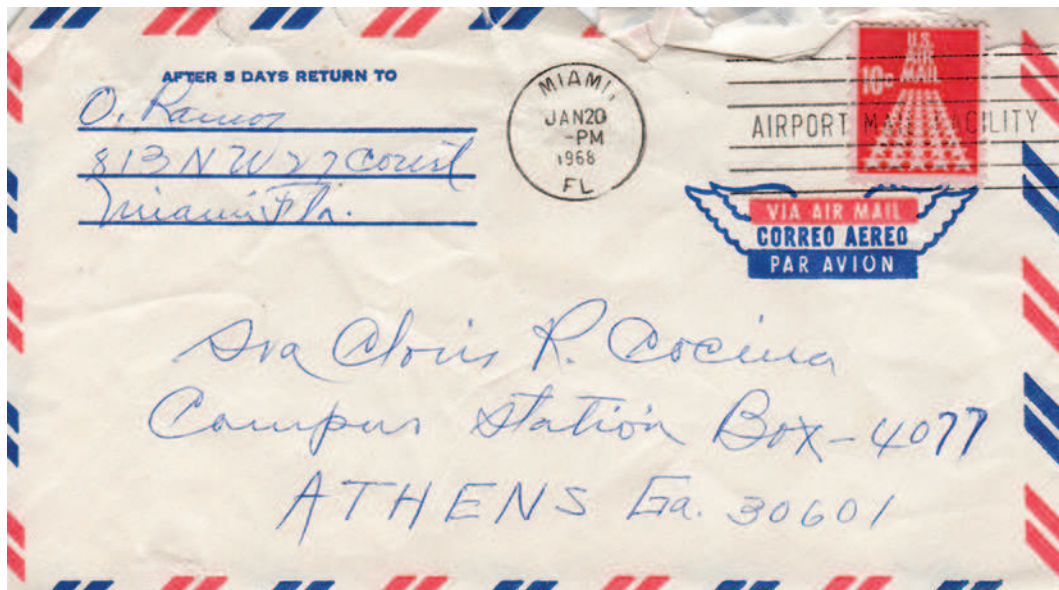 AFTER 5 DAYS RETURN TO
O. Ramos
813 N W 27 Court
Miami Fla.
MIAMI,
JAN20
-PM
1968
FL
U.S.
AIR
MAIL
10c
AIRPORT MAIL FACILITY
VIA AIR MAIL
CORREO AEREO
PAR AVION
Sra Cloris R. Cocina
Campus Station Box-4077
ATHENS Ga. 30601